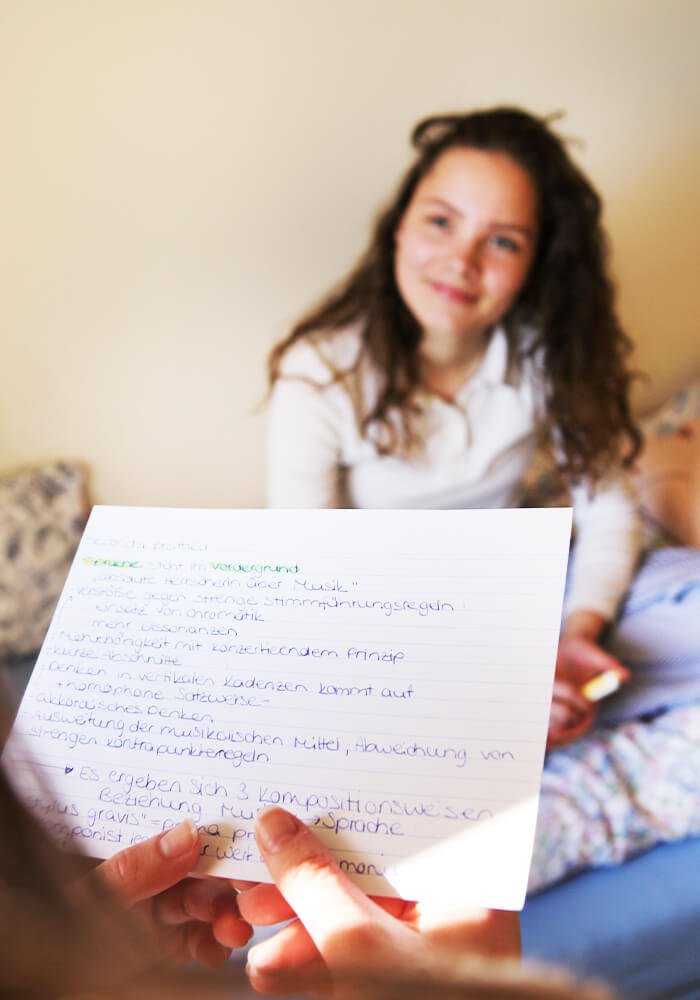 seconda prattica
Sprache steht im Vordergrund
„absolute Herrscherin über Musik"
Verstöße gegen strenge Stimmführungsregeln
Einsatz von Chromatik
mehr Dissonanzen
Mehrchörigkeit mit konzertierendem Prinzip
kurze Abschnitte
Denken in vertikalen Kadenzen kommt auf
+ homophone Satzweise -
- akkordisches Denken
- Ausweitung der musikalischen Mittel, Abweichung von
strengen Kontrapunktregeln
♥ Es ergeben sich 3 Kompositionsweisen
Beziehung → Sprache
gravis" = prima